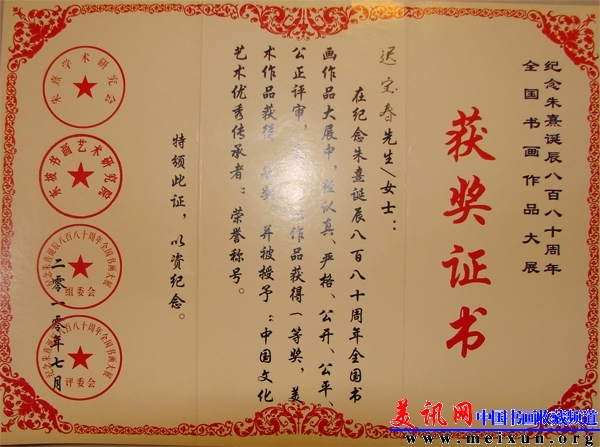 纪念朱熹诞辰八百八十周年
全国书画作品大展
获奖证书
迟宝春先生/女士：
在纪念朱熹诞辰八百八十周年全国书
画作品大展中，经认真、严格、公开、公平、
公正评审，
作品获得一等奖，美
术作品获得
并被授予：中国文化
艺术优秀传承者：荣誉称号。
特颁此证，以资纪念。
朱熹学术研究会
东坡书画艺术研究院
纪念朱熹诞辰八百八十周年全国书画大展
组委会
纪念朱熹诞辰八百八十周年全国书画大展
评委会
二零一零年七月
美讯网 中国书画收藏频道
www.meixun.org